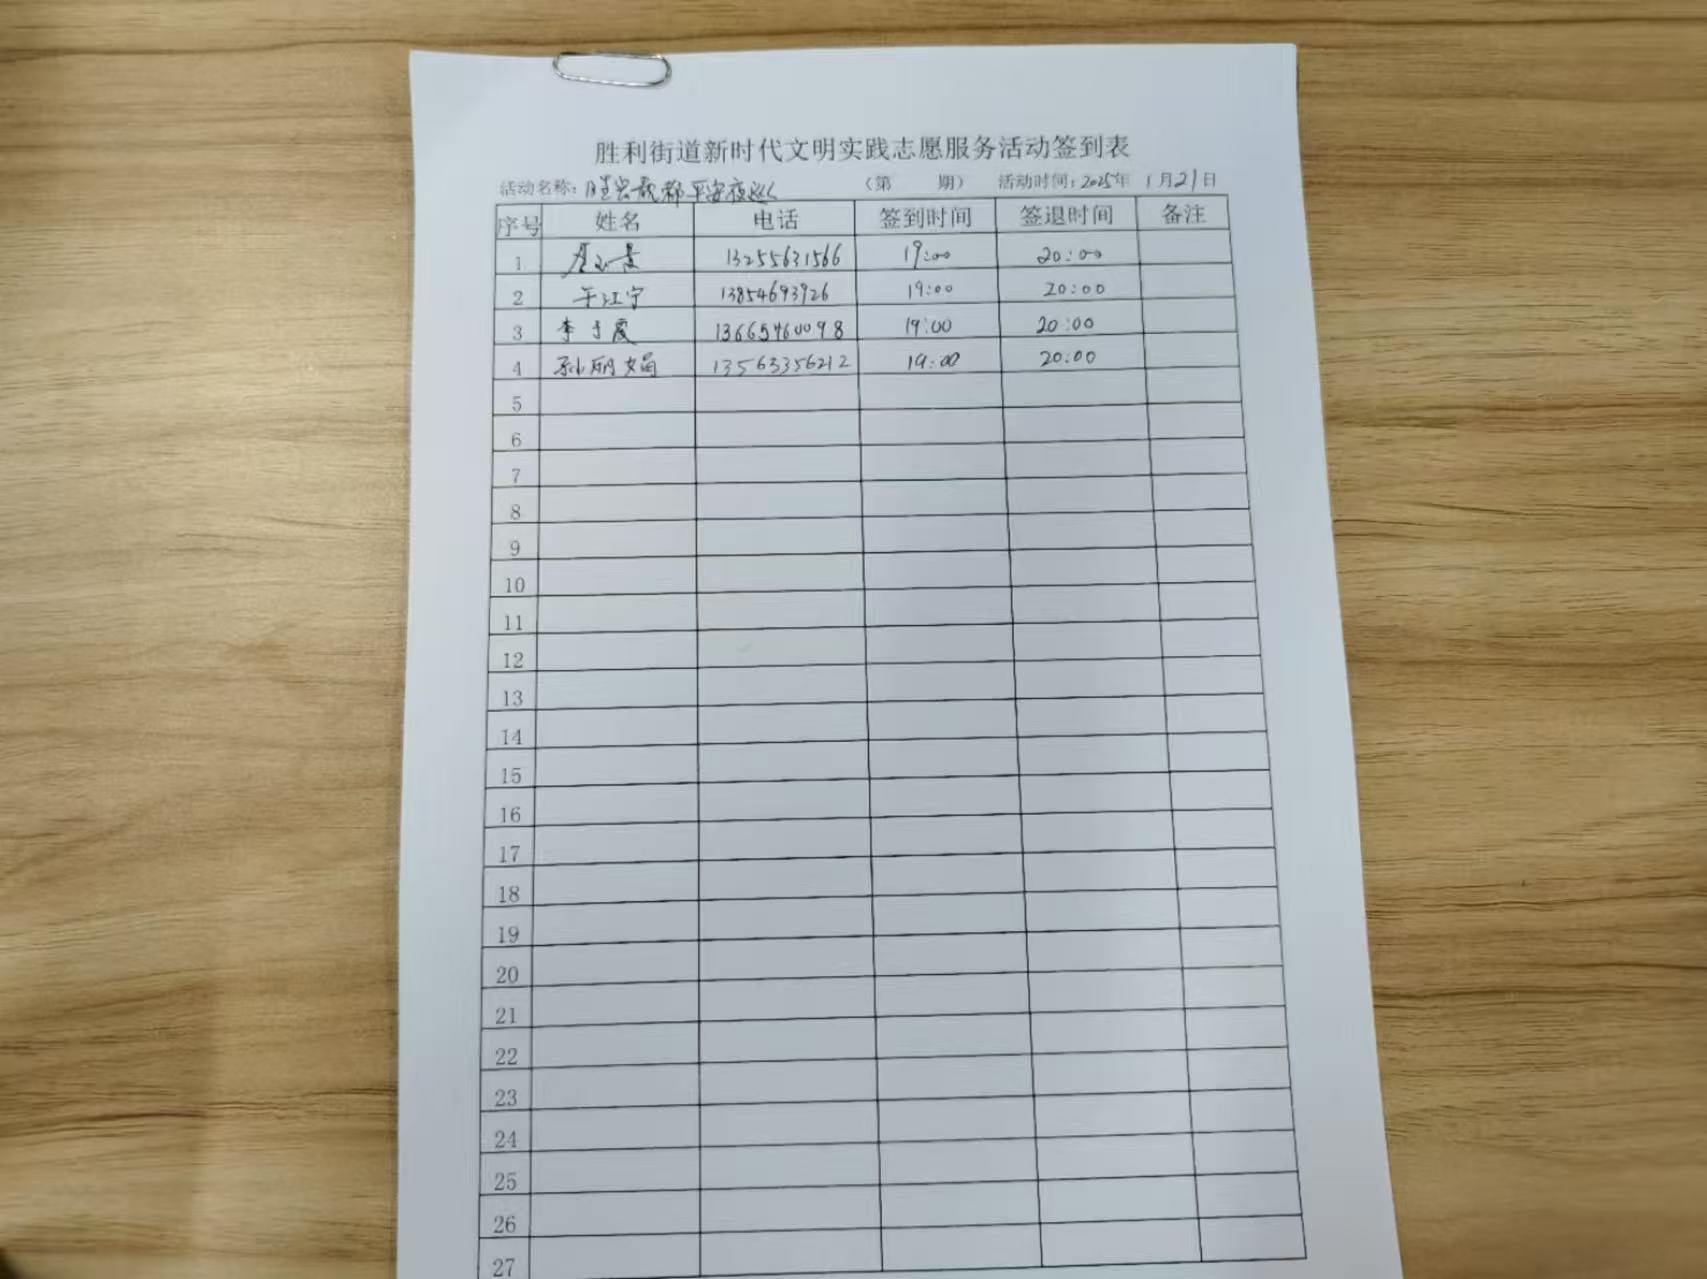 胜利街道新时代文明实践志愿服务活动签到表
活动名称：胜宏龍都平安夜巡 （第 期） 活动时间：2025年 1月21日
序号 姓名 电话 签到时间 签退时间 备注
1 13255631566 19:00 20:00
2 于江宁 13854693926 19:00 20:00
3 李于霞 13665460098 19:00 20:00
4 孙丽娟 13563356212 19:00 20:00
5
6
7
8
9
10
11
12
13
14
15
16
17
18
19
20
21
22
23
24
25
26
27